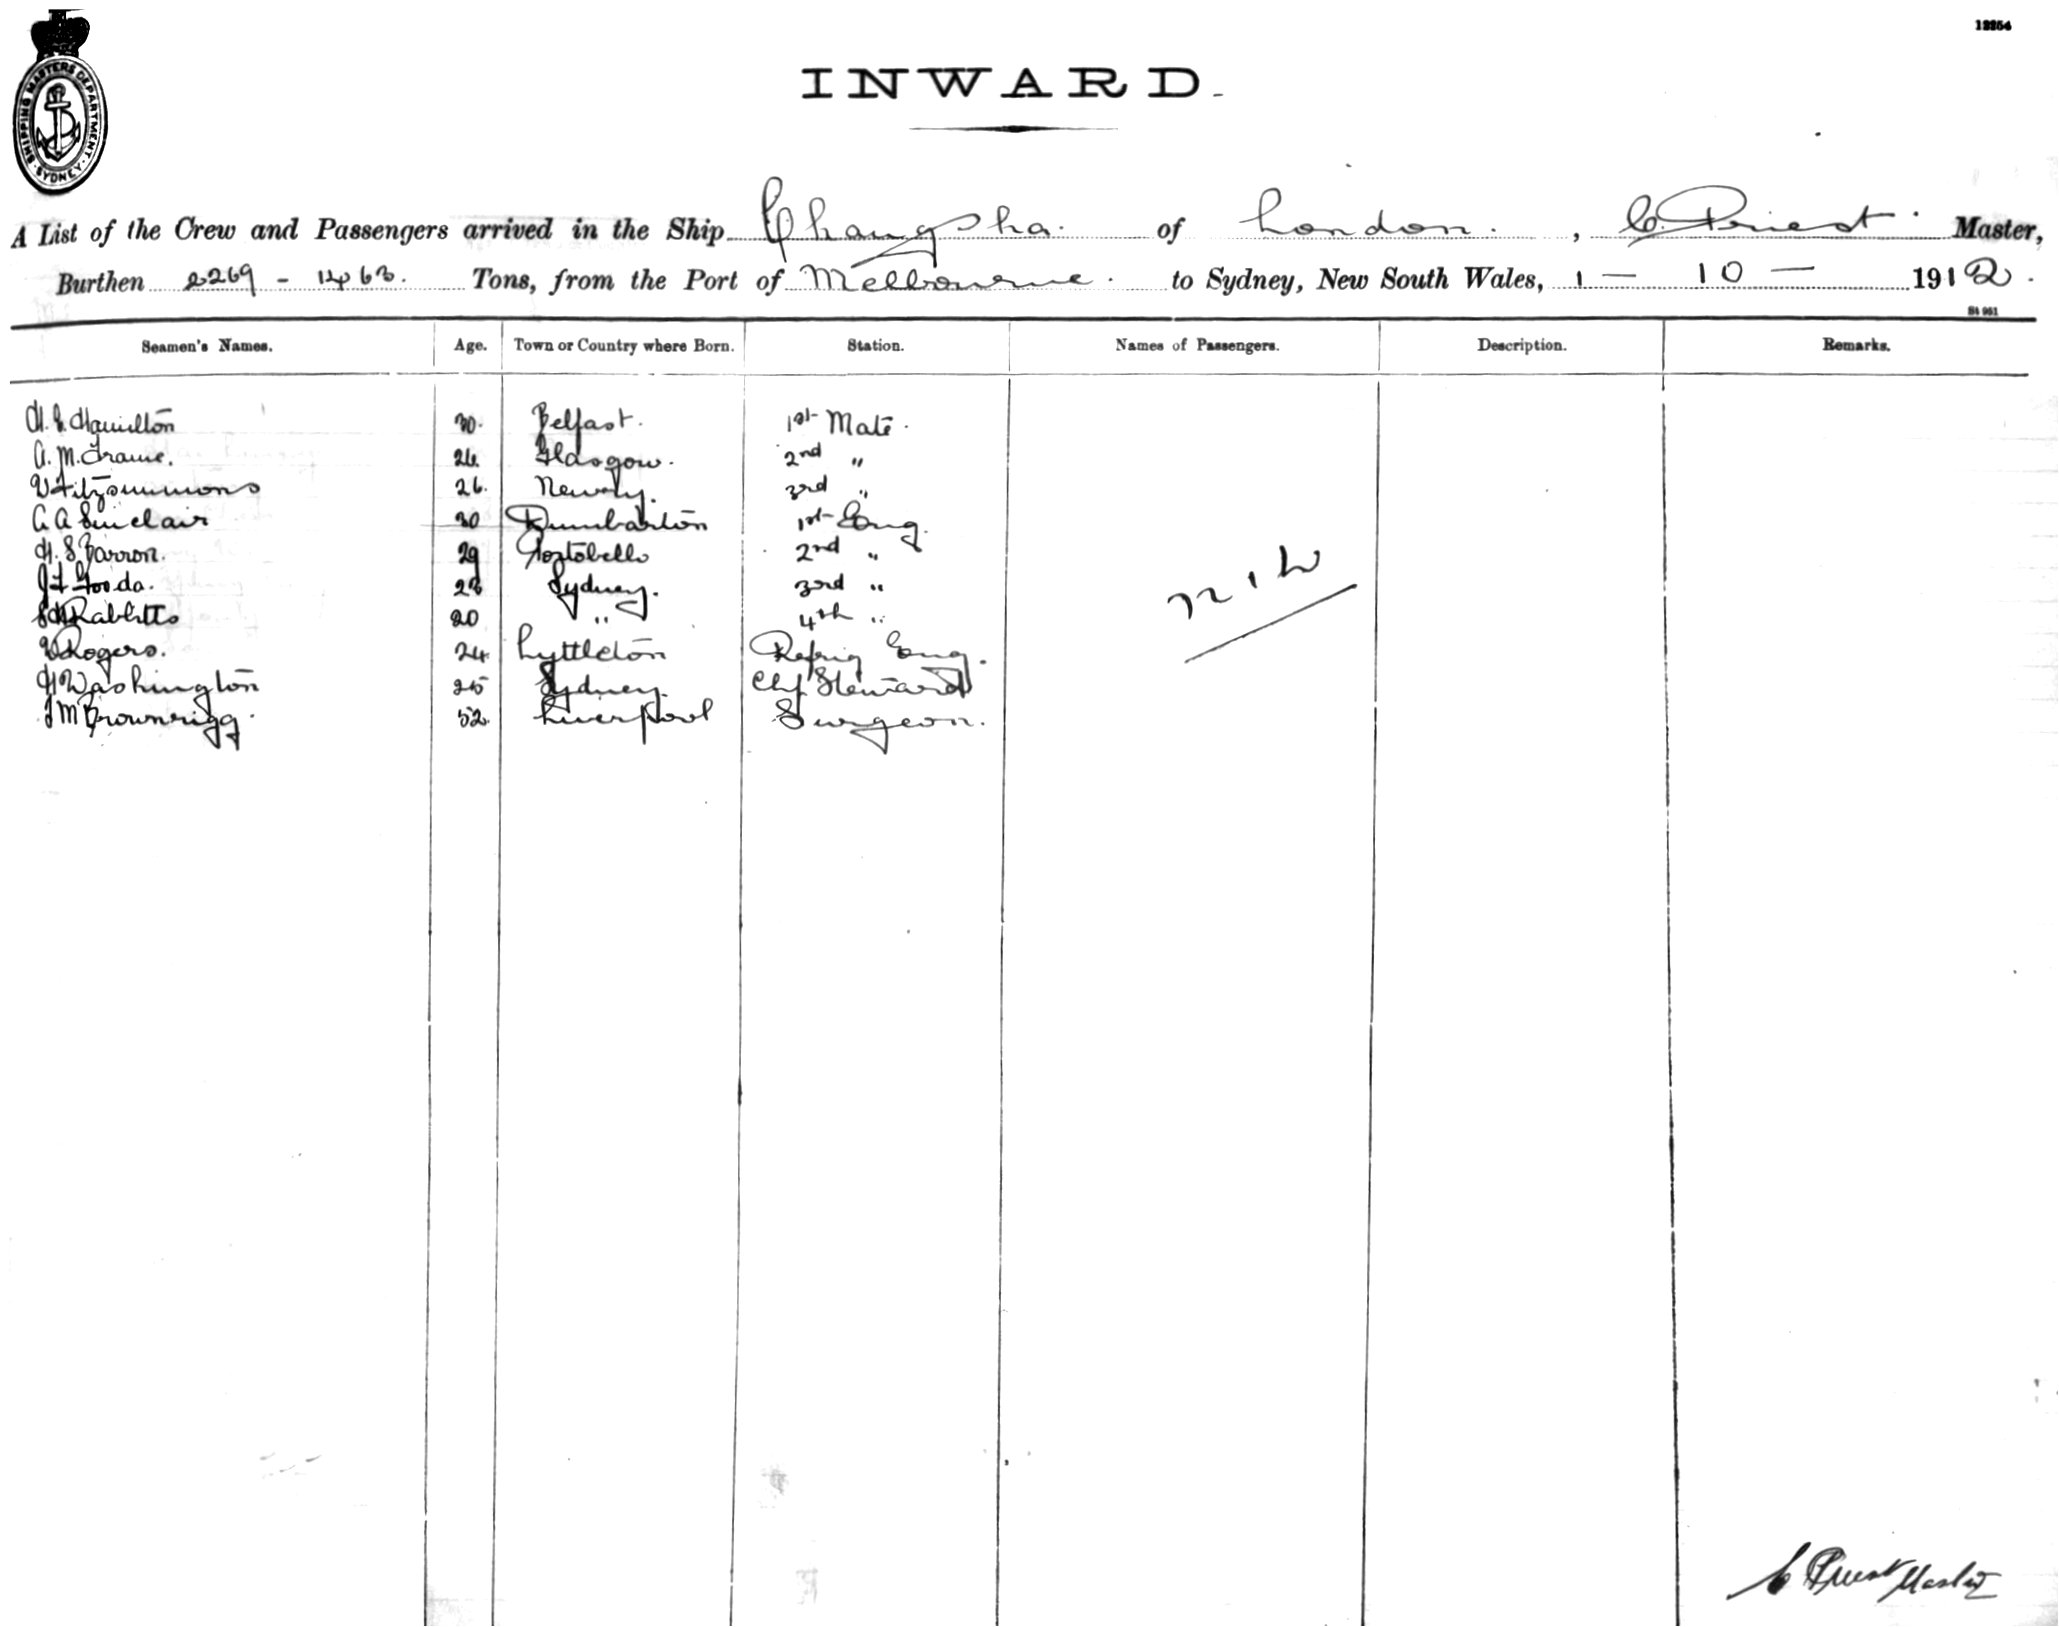 12254
SHIPPING MASTERS DEPARTMENT · SYDNEY
INWARD.
A List of the Crew and Passengers arrived in the Ship Changsha. of London. , C. Priest. Master,
Burthen 2269 - 1463. Tons, from the Port of Melbourne. to Sydney, New South Wales, 1 — 10 — 1912.
St 951
Seamen's Names. Age. Town or Country where Born. Station. Names of Passengers. Description. Remarks.
H. E. Hamilton 30. Belfast. 1st Mate.
A. M. Frame. 26. Glasgow. 2nd "
Fitzsimmons 26. Newry. 3rd "
A Sinclair 30 Dumbarton 1st Eng.
H. S. Barron. 29 Portobello 2nd "
23 Sydney. 3rd "
Rabbitts 20 " 4th "
W Rogers. 24. Lyttleton Refrig Eng.
H Washington 25 Sydney. Chf Steward
J M Brownrigg. 52. Liverpool Surgeon.
C Priest Master